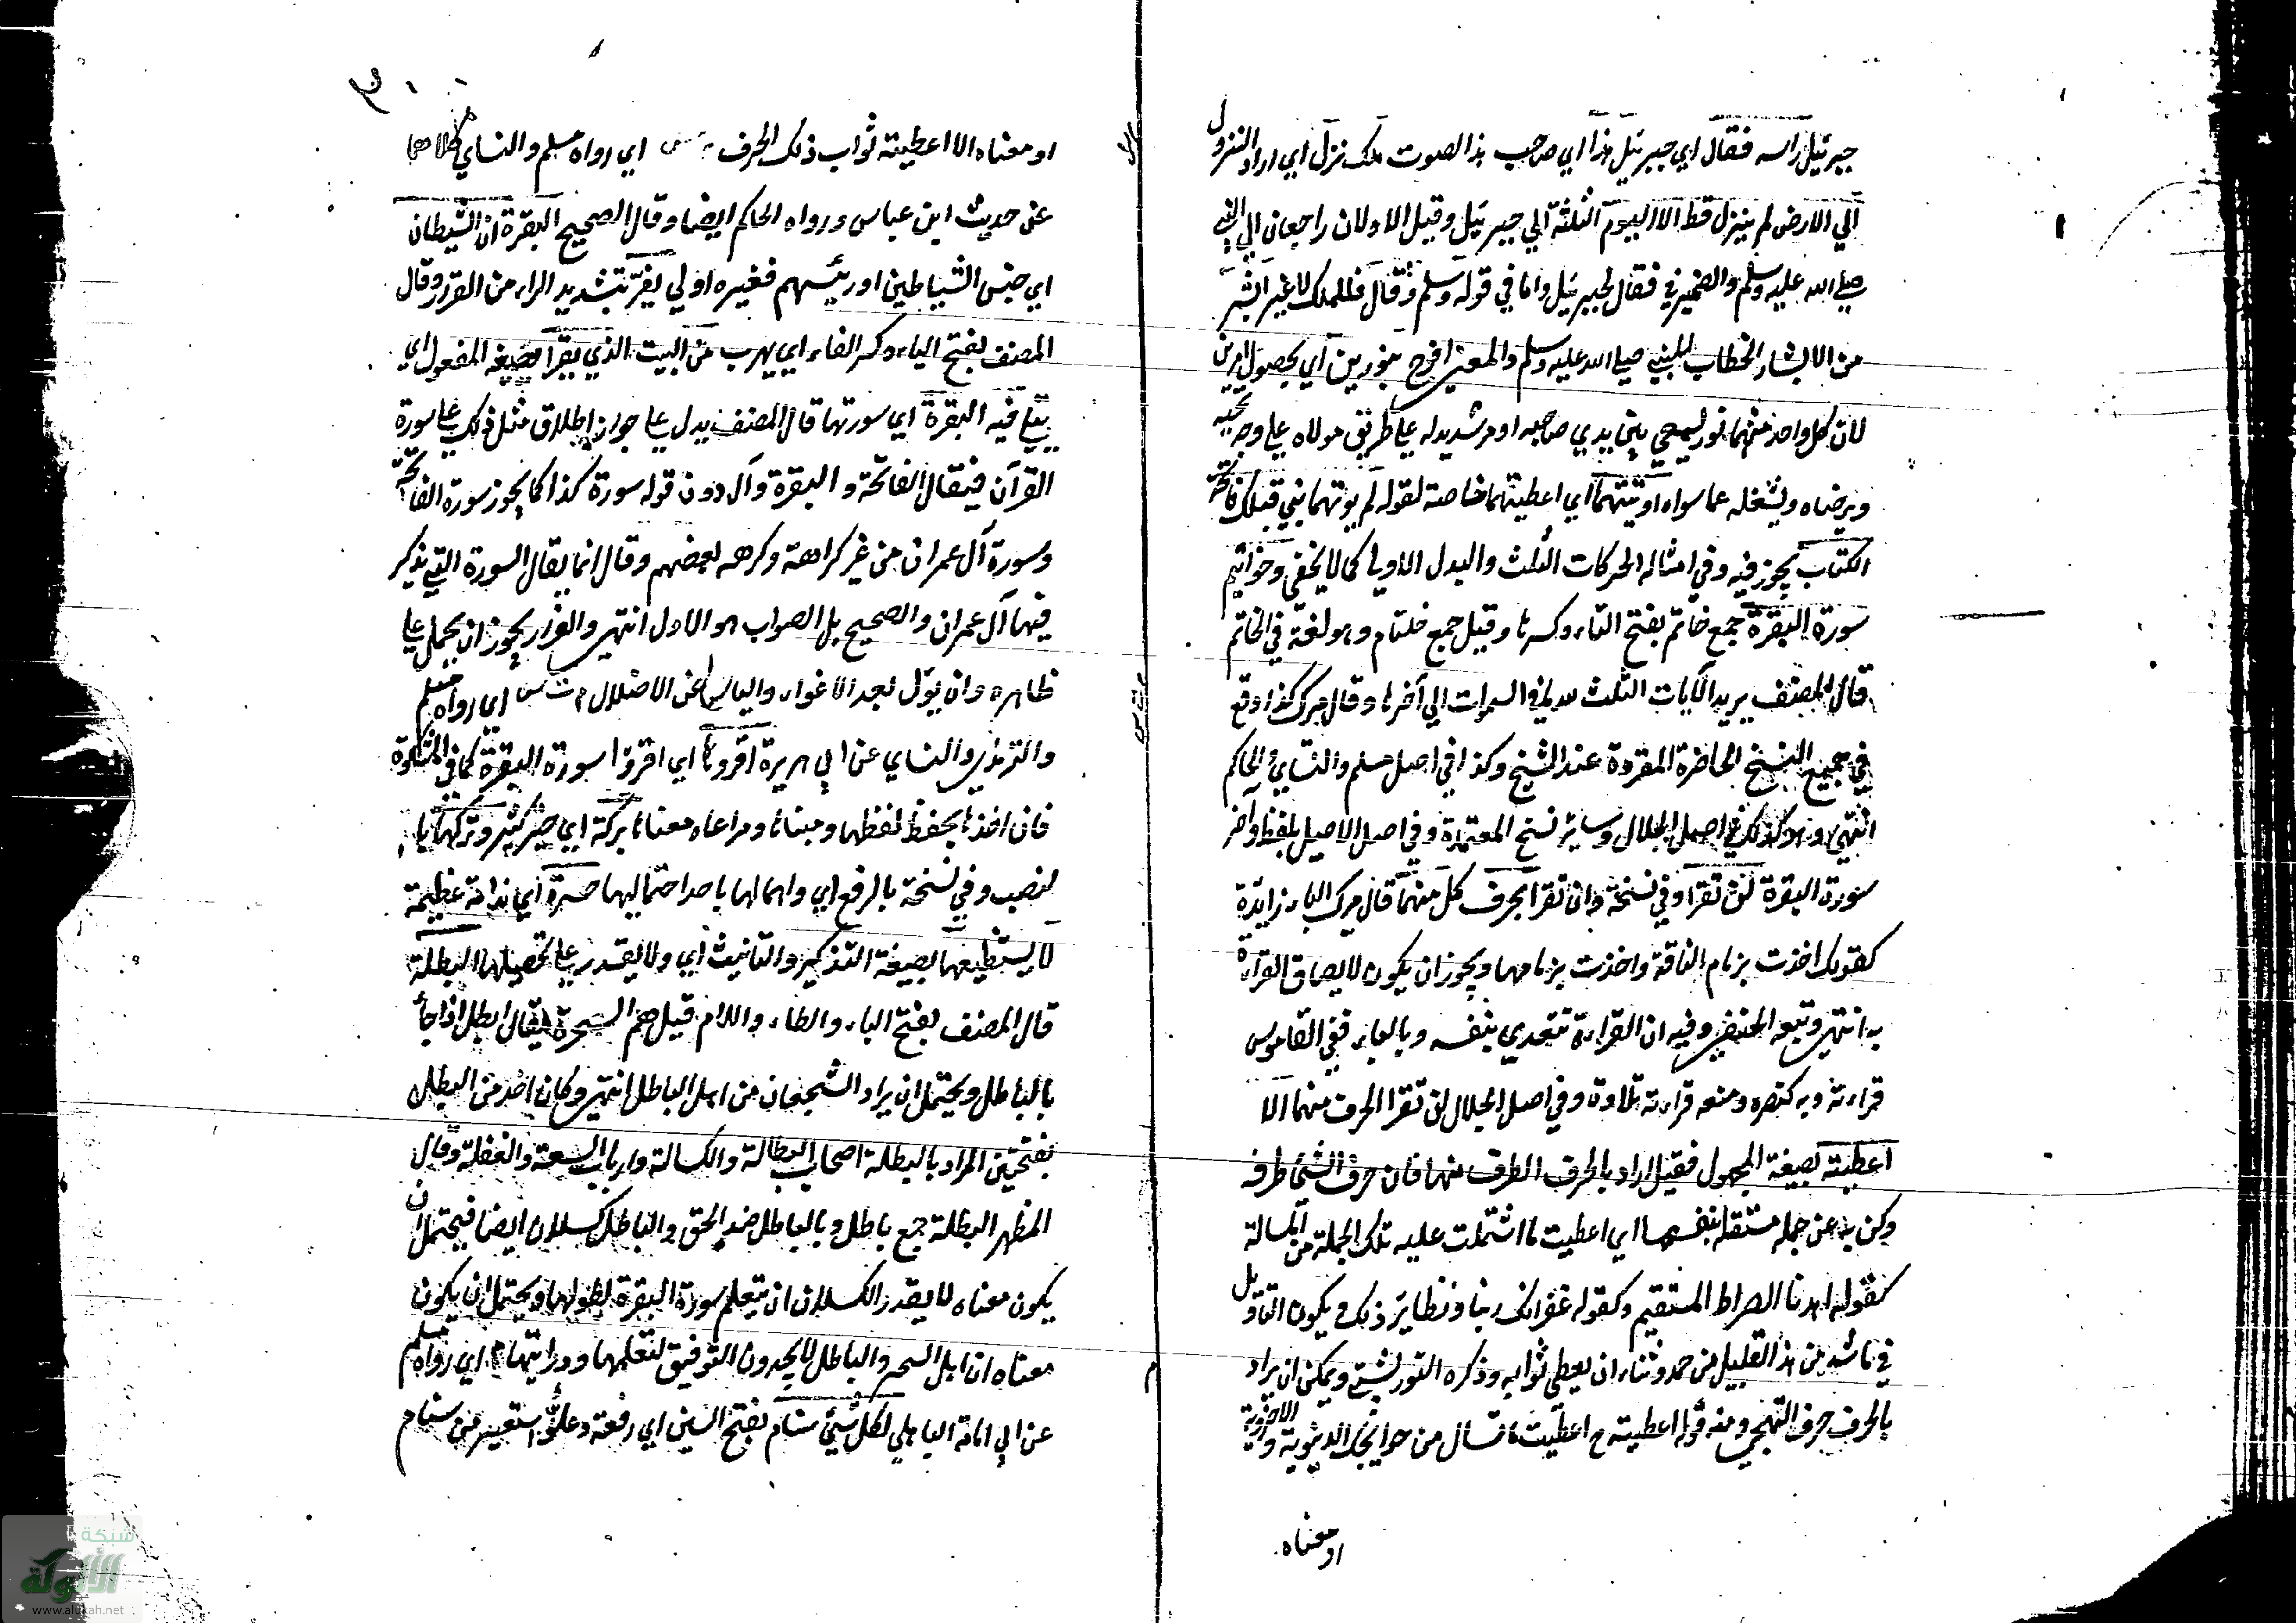 جبرئيل راسه فقال اي جبرئيل هذا اي صاحب هذا الصوت ملك نزل اي اراد النزول
الي الارض لم ينزل قط الا اليوم الثلثة الي جبرئيل وقيل الاولان راجعان الي النبي
صلي الله عليه وسلم والضمير في فقال لجبرئيل واما في قوله وسلم وقال فللملك لا غير ابشر
من الابشار الخطاب للنبي صلي الله عليه وسلم والمعني افرح بنورين اي بحصول امرين
لان كل واحد منهما نور يسعي بين يدي صاحبه او مرشد يدله علي طريق مولاه علي وجه يحبه
ويرضاه ويشغله عما سواه اوتيتهما اي اعطيتهما خاصة لقوله لم يوتهما نبي قبلك فاتحة
الكتاب يجوز فيه وفي امثاله الحركات الثلث والبدل الاولي كما لا يخفي وخواتيم
سورة البقرة جمع خاتم بفتح التاء وكسرها وقيل جمع ختام وهو لغة في الخاتم
قال المصنف يريد الآيات الثلث لله ما في السموات الي آخرها وقال ميرك كذا وقع
في جميع النسخ الحاضرة المقروة عند الشيخ وكذا في اصل مسلم والنسايئ والحاكم
انتهي وهو كذلك في اصل الجلال وساير نسخ المعتمدة وفي اصل الاصيل بلفظ وآخر
سورة البقرة لن تقرا وفي نسخة وان تقرا بحرف كل منهما قال ميرك الباء زايدة
كقولك اخذت بزمام الناقة واخذت بزمامها ويجوز ان يكون لالصاق القراءة
به انتهي وتبعه الحنفي وفيه ان القراءة تتعدي بنفسه وبالباء ففي القاموس
قراءته وبه كنصره ومنعه قراءته تلاوة وفي اصل الجلال لن تقرا الحرف منهما الا
اعطيته بصيغة المجهول فقيل اراد بالحرف الطرف منها فان حرف الشئ طرفه
وكني به عن جملة مستقلة بنفسها اي اعطيت ما اشتملت عليه تلك الجملة من المسالة
كقوله اهدنا الصراط المستقيم وكقوله غفرانك ربنا ونظاير ذلك ويكون التاويل
في ما شذ من هذا القبيل من حمد وثناء ان يعطي ثوابه وذكره التوربشتي ويمكن ان يراد
بالحرف حرف التهجي ومنه قوله اعطيته ح اعطيت ما تسال من حوايجك الدنيوية والاخروية
او معناه
او معناه الا اعطيته ثواب ذلك الحرف م س اي رواه مسلم والنساي كلاهما
عن حديث ابن عباس ورواه الحاكم ايضا وقال الصحيح البقرة ان الشيطان
اي جنس الشياطين او رئيسهم فغيره اولي يفر بتشديد الراء من الفرار وقال
المصنف بفتح الياء وكسر الفاء اي يهرب من البيت الذي يقرا بصيغة المفعول اي
يتلي فيه البقرة اي سورتها قال المصنف يدل علي جواز اطلاق مثل ذلك علي سورة
القرآن فيقال الفاتحة والبقرة وآل دون قوله سورة كذا كما يجوز سورة الفاتحة
وسورة آل عمران من غير كراهة وكرهه بعضهم وقال انما يقال السورة التي يذكر
فيها آل عمران والصحيح بل الصواب هو الاول انتهي والفرار يجوز ان يحمل علي
ظاهره وان يؤل ببعد الاغواء والياس عن الاضلال م ت س اي رواه مسلم
والترمذي والنساي عن ابي هريرة اقروها اي اقروا سورة البقرة كما في المشكوة
فان اخذها بحفظ لفظها ومبناها ومراعاه معناها بركة اي خير كثير وتركها با
لنصب وفي نسخة بالرفع اي واهمالها باحد احتماليها حسرة اي ندامة عظيمة
لا يستطيعها بصيغة التذكير والتانيث اي ولا يقدر علي تحصيلها البطلة
قال المصنف بفتح الباء والطاء واللام قيل هم السحرة يقال ابطل اذا جأ
بالباطل ويحتمل ان يراد الشجعان من اهل الباطل انتهي وكان اخذ من البطل
بفتحتين المراد بالبطلة اصحاب البطالة والكسالة وارباب السعة والغفلة وقال
المظهر البطلة جمع باطل وبالباطل ضد الحق والباطل كسلان ايضا فيحتمل ان
يكون معناه لا يقدر الكسلان ان يتعلم سورة البقرة لطولها ويحتمل ان يكون
معناه ان اهل السحر والباطل لا يجدون التوفيق لتعلمها ودرايتها م اي رواه مسلم
عن ابي امامة الباهلي لكل شيئ سنام بفتح السين اي رفعة وعلو استعير من سنام
شبكة
الألوكة
www.alukah.net